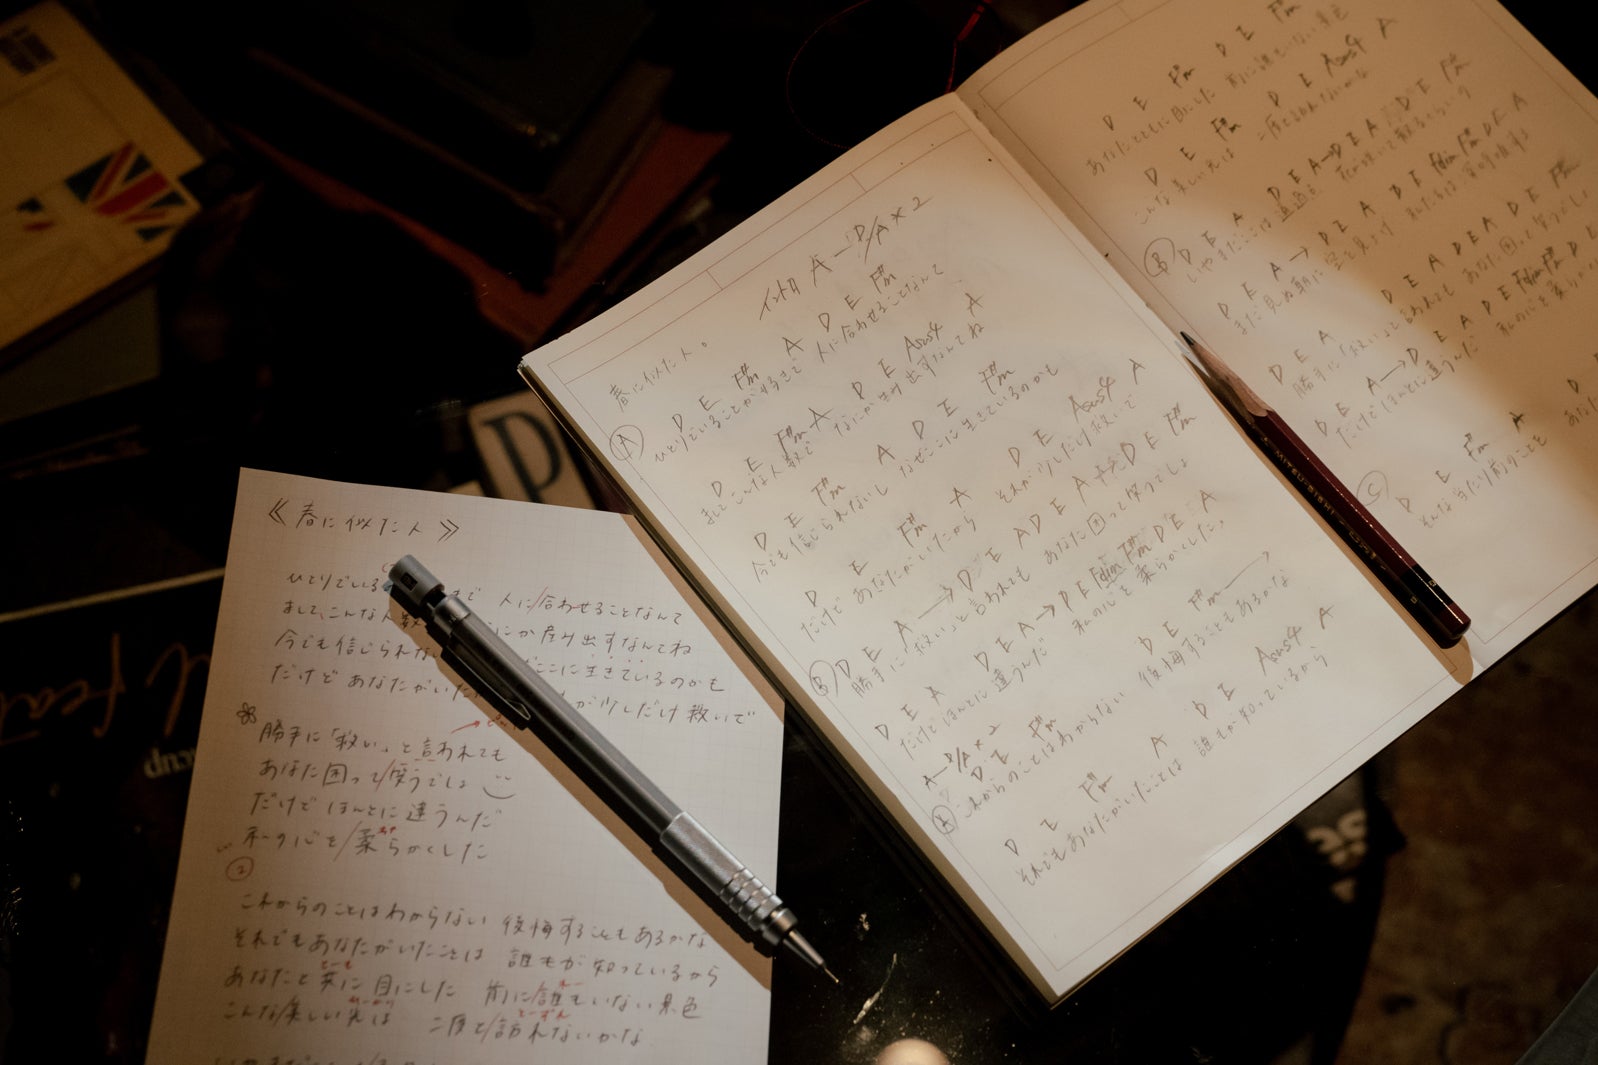 《春に似た人》
ひとりでいる まで 人に/合わせることなんて
まして、こんな人数 なにか/産み出すなんてね
今でも信じられな ここに生きているのかも
だけど あなたがいた が少しだけ救いで
勝手に「救い」と言われても
あなた困って/笑うでしょ
だけど ほんとに違うんだ
私の心を/柔らかくした
②
これからのことはわからない 後悔することもあるかな
それでもあなたがいたことは 誰もが知っているから
あなたと共に目にした 前に/誰もいない景色
こんな/美しい先は 二度と/訪れないかな
春に似た人。
イントロ A―D/A×2
Ⓐ D E F#m A D E F#m
ひとりでいることがやるまで 人に合わせることなんて
D E F#m A D E Asus4 A
ましてこんな人数で なにか産み出すなんてね
D E F#m A D E F#m
今でも信じられないし なぜここに生きているのかも
D E F#m A D E Asus4 A
だけど あなたがいたから それが少しだけ救いで
Ⓑ D E A→D E A D E A D E F#m
勝手に「救い」と言われても あなた困って笑うでしょ
D E A D E A→D E Fdim F#m D E A
だけどほんとに違うんだ 私の心を柔らかくした。
A―D/A×2
D E F#m D E F#m
Ⓐ これからのことはわからない 後悔することもあるかな
D E F#m A D E Asus4 A
それでもあなたがいたことは 誰もが知っているから
D E F#m D E F#m
あなたとともに目にした 前に誰もいない景色
D E F#m D E Asus4 A
こんな美しい先は 二度と訪れないかな
Ⓑ D E A D E A→D E A D E F#m
いやまだここは通過点
D E A→D E A D E Fdim F#m D E A
まだ見ぬ朝に空を見上げ 私たちは
D E A D E A D E A D E F#m
勝手に「救い」と言われても あなた困って笑うでしょ
D E A→D E A D E Fdim F#m D E
だけどほんとに違うんだ 私の心を柔らか
Ⓒ D E F#m A D
そんな当たり前のことを あな
MITSU-BISHI
P